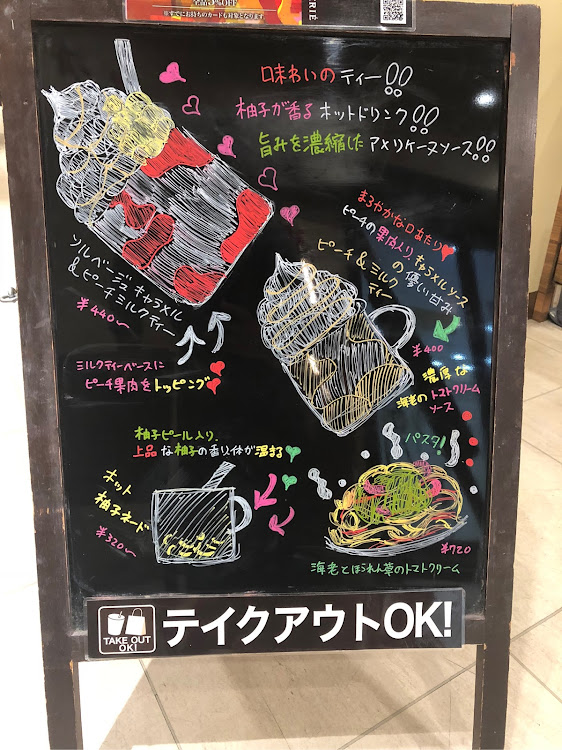 全品5%OFF
※すでにお持ちのカードも対象となります
RIE
味わいのティー!!
柚子が香るホットドリンク!!
旨みを濃縮したアメリケーヌソース!!
ソルベージュキャラメル
&ピーチミルクティー
¥440〜
ミルクティーベースに
ピーチ果肉をトッピング
まろやかな口あたり
ピーチの果肉入り、キャラメルソース
の優しい甘み
ピーチ&ミルク
ティー
¥400
濃厚な
海老のトマトクリーム
ソース
パスタ!
柚子ピール入り、
上品な柚子の香り体が温まる
ホット
柚子ネード
¥320〜
¥720
海老とほうれん草のトマトクリーム
TAKE OUT
OK!
テイクアウトOK!